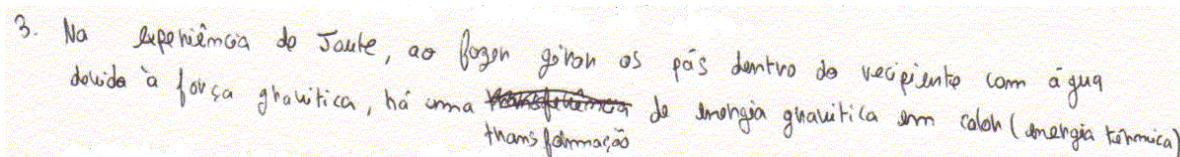 3. Na experiência do Joule, ao fazer girar os pás dentro do recipiente com água
devido à força gravítica, há uma transferência de energia gravítica em calor (energia térmica)
transformação